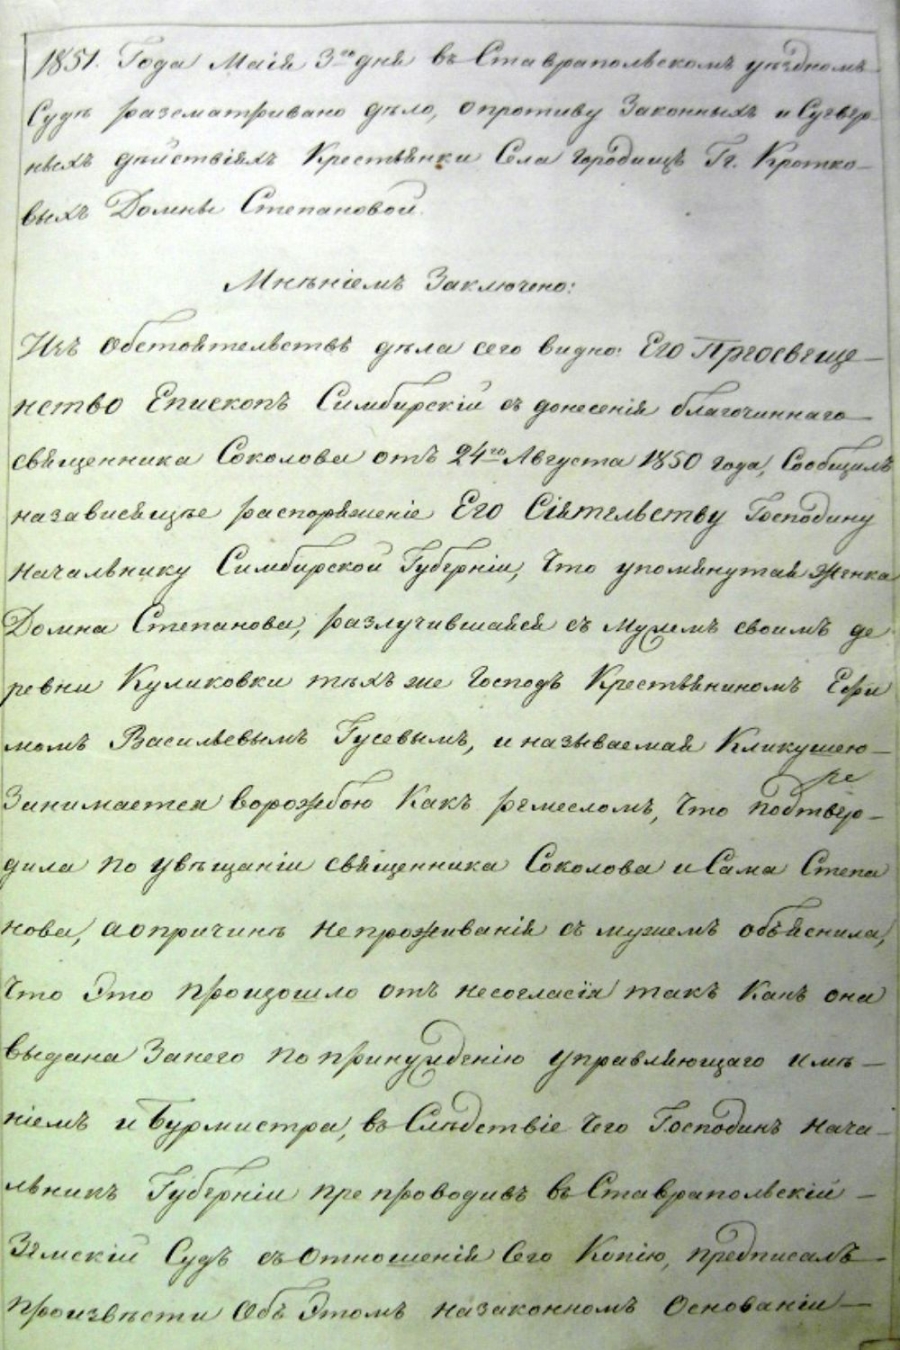 1851. Года Маія 3го дня въ Ставрапольскомъ уѣздномъ
Судѣ разсматривано дѣло, опротиву Законныхъ и Суевѣр-
ныхъ дѣйствіяхъ Крестьянки Села Городищъ Гг. Кротко-
выхъ Домны Степановой.
Мнѣніемъ Заключено:
Изъ обстоятельствъ дѣла сего видно: Его Преосвяще-
нство Епископъ Симбирскій съ донесенія благочиннаго
священника Соколова отъ 24го Августа 1850 года, Сообщилъ
назависящее распоряженіе Его Сіятельству Господину
Начальнику Симбирской Губерніи, Что упомянутая женка
Домна Степанова, разлучившаяся съ Мужемъ своимъ де
ревни Куликовки тѣхъ же Господъ Крестьяниномъ Ефи
момъ Васильевымъ Гусевымъ, и называемая Кликушею
Занимается ворожбою Какъ ремесломъ, Что подтвер-
дила по увѣщаніи священника Соколова и Сама Степа
нова, аопричинѣ непроживанія съ мужемъ объяснила,
Что Это произошло отъ несогласія такъ Какъ она
выдана Занего по принужденію управляющаго имѣ-
ніемъ и Бурмистра, въ Слѣдствіе Чего Господинъ Нача-
льникъ Губерніи препроводивъ въ Ставрапольскій
Земскій Судъ съ отношенія Сего Копію, предписалъ
произвѣсти Объ Этомъ назаконномъ Основаніи